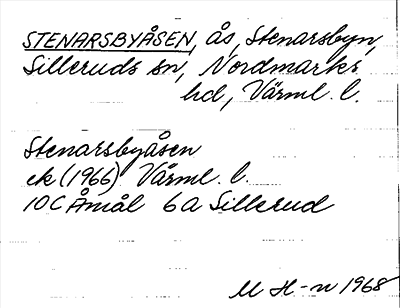 STENARSBYÅSEN, ås, Stenarsbyn,
Silleruds sn, Nordmarks
hd, Värml. l.
Stenarsbyåsen
ek (1966) Värml. l.
10C Åmål 6a Sillerud
M H-n 1968